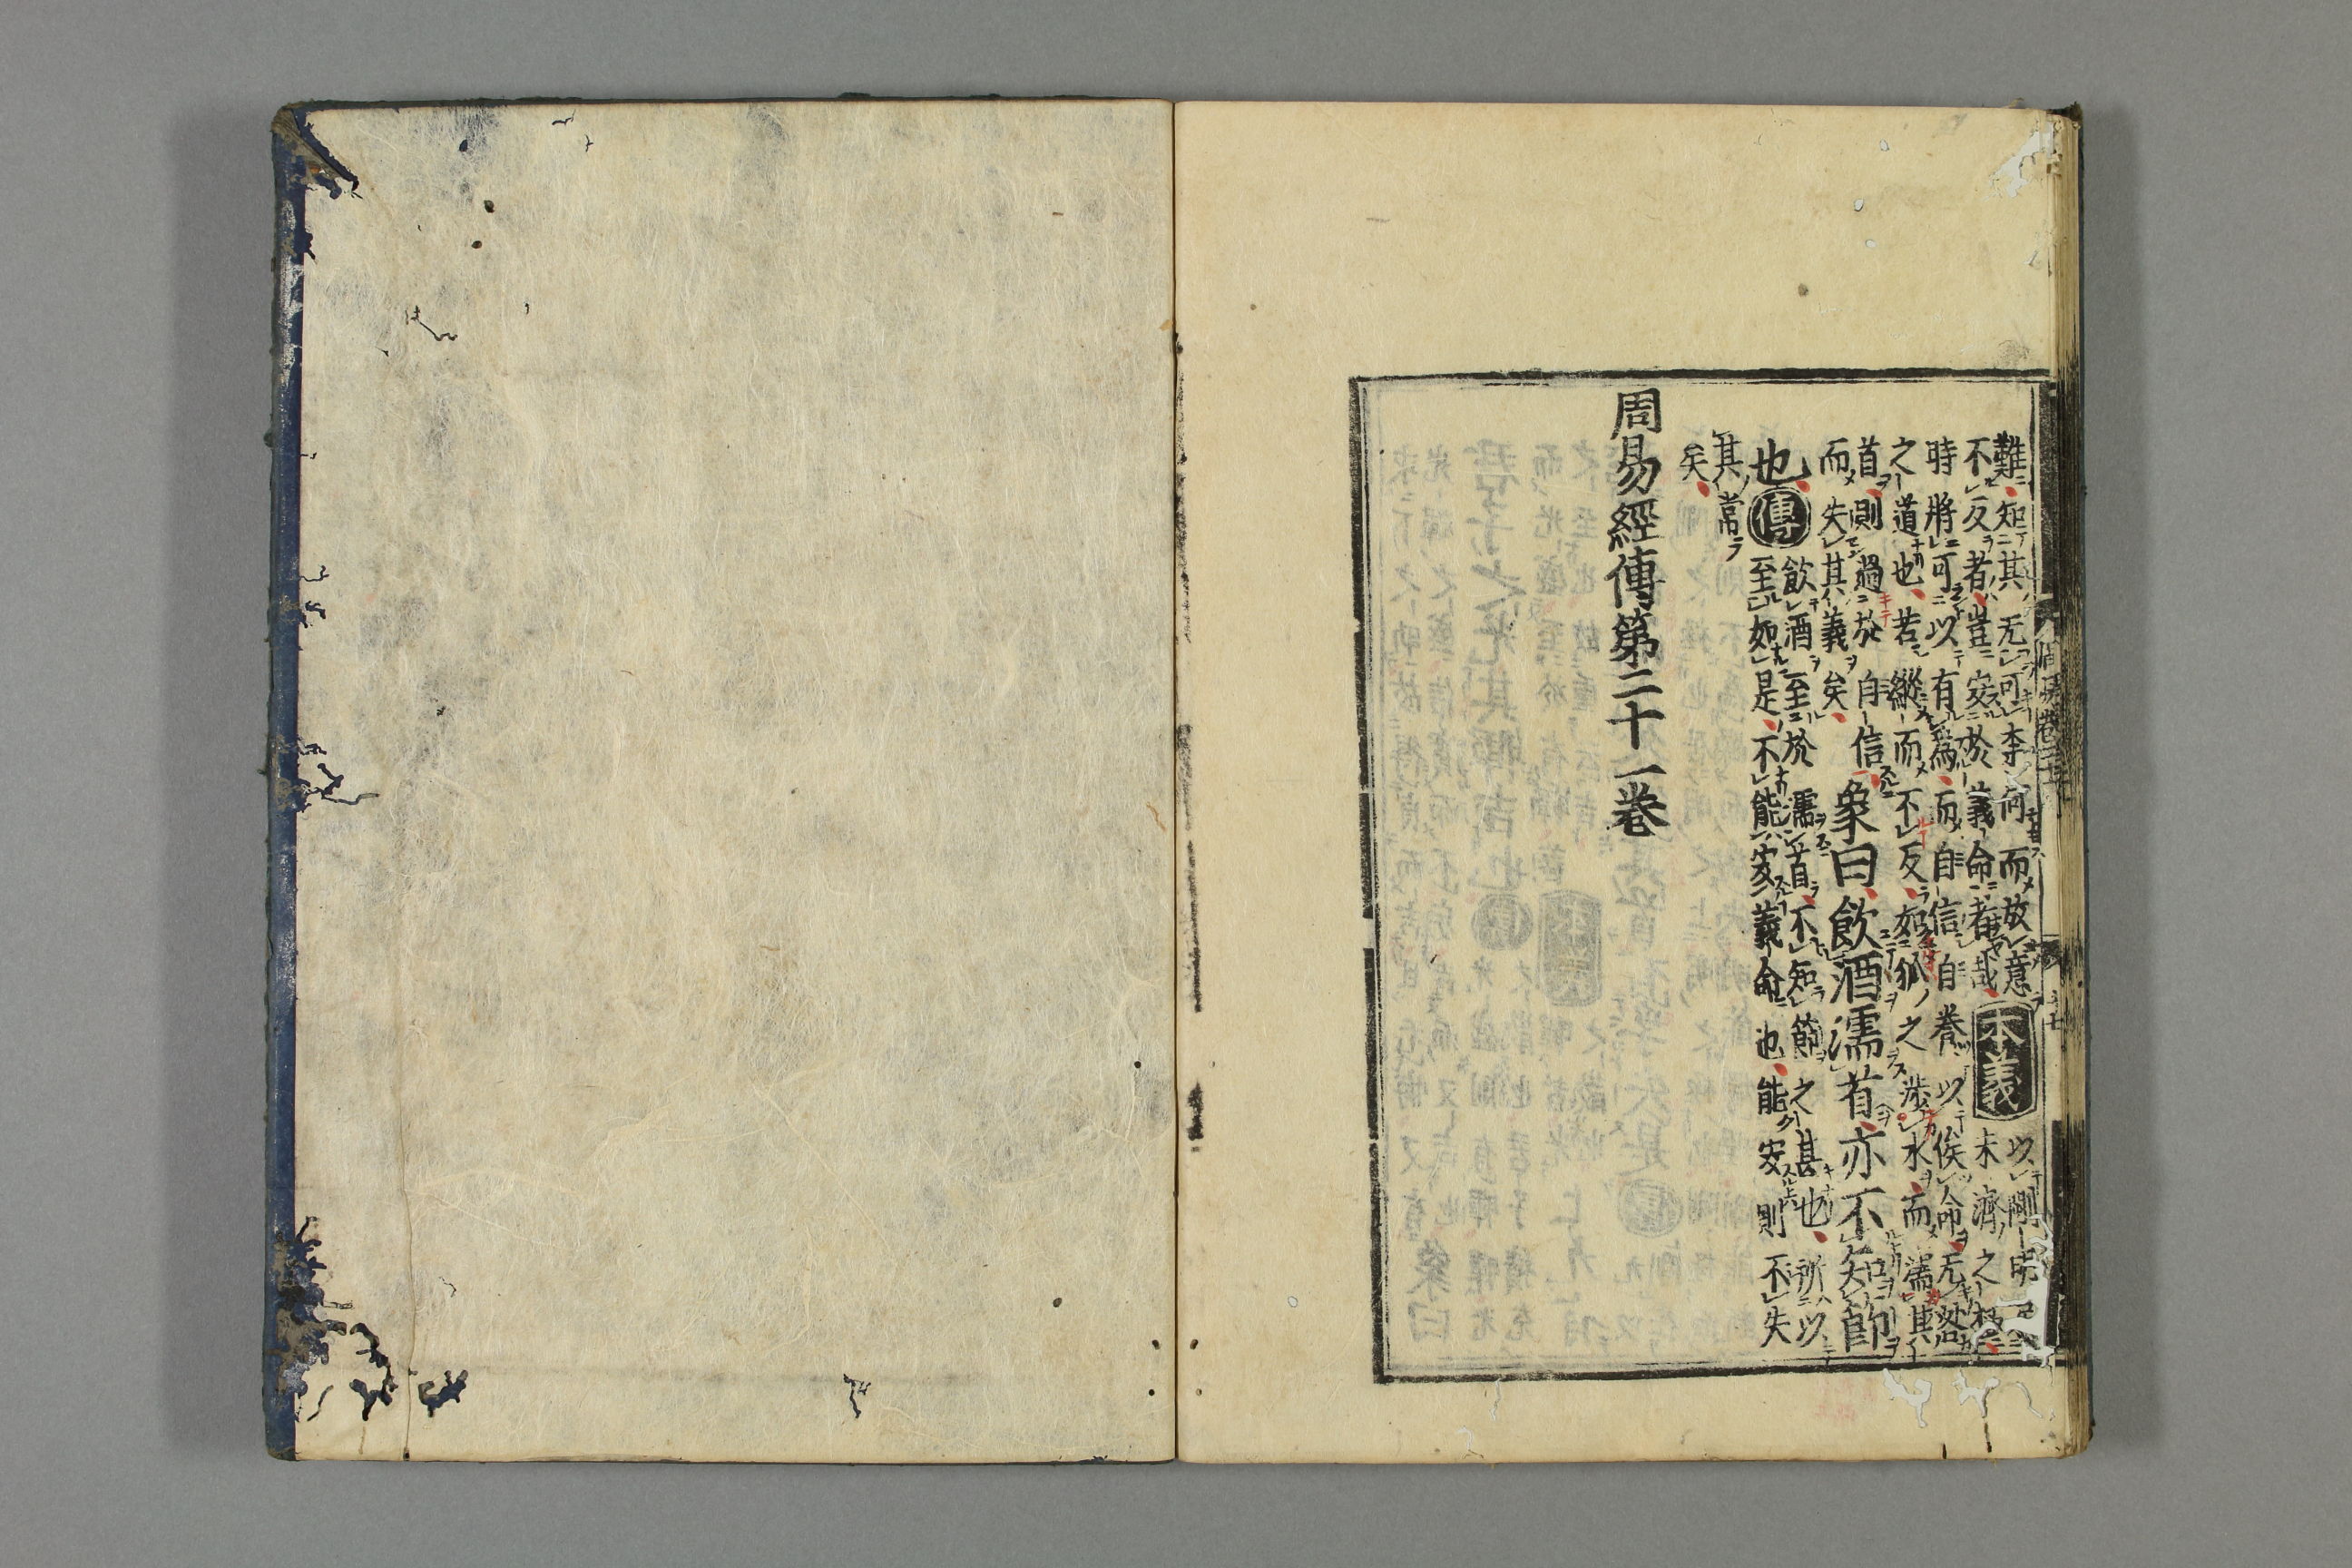 難知其无可柰何而放意
不反者豈安於義命者哉
本義
以剛明居
未濟之極
時將可以有爲而自信自養以俟命无咎
之道也若縱而不反如狐之渉水而濡其
首則過於自信
而失其義矣
象曰飲酒濡首亦不知節
也
傳
飲酒至於濡首不知節之甚也所以
至如是不能安義命也能安則不失
其常
矣
周易經傳第二十一卷